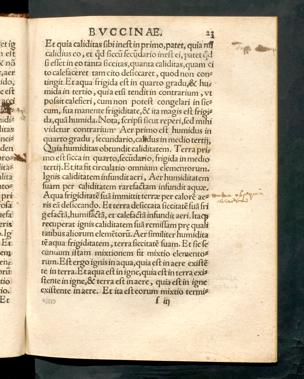 BVCCINAE. 23
Et quia caliditas sibi inest in primo, patet, quia nisi
calidus eo, et ꝙ siccũ secũdario inest ei, patet ꝙd
si esset in eo tanta siccitas, quanta caliditas, quam ci
to calefaceret tam cito desiccaret, quod non con-
tingit. Et aqua frigida est in quarto gradu, & hu
mida in tertio, quia etsi tendit in contrarium, vt
possit caleferi, cum non potest congelari in sic-
cum, sua manente frigiditate, & ita magis est frigi
da, quá humida. Nota, scripsi sicut reperi, sed mihi
videtur contrarium Aer primo est humidus in
quarto gradu, secundario, calidus in medio tertij,
Quia humiditas obtundit caliditatem. Terra pri
mo est sicca in quarto, secũdario, frigida in medio
tertij. Et ita fit circulatio omnium elementorum.
Ignis caliditatem infundit aeri, Aer humiditatem
suam per caliditatem rarefactam infundit aquæ.
Aqua frigiditatē suā immittit terræ per calorē ae-
ris ei desiccando. Et terra desiccata siccitatē suā fri
gefactā, humifactā, et calefactā infundit aeri. Itaq;
recuperat ignis caliditatem suā remissam pre quali
tatibus aliorum elemētorū. Aer similiter humidita
tē aquæ frigiditatem, terra siccitatē suam. Et sic se
cundum istam mixtionem fit mixtio elemento-
rum. Est ergo ignis in aqua, quia est in aere existē
te in terra. Et aqua est in igne, quia est in terra exi-
stente in igne, & terra est in aere, quia est in igne
existente in aere. Et ita est eorum mixtio termi-
f iij